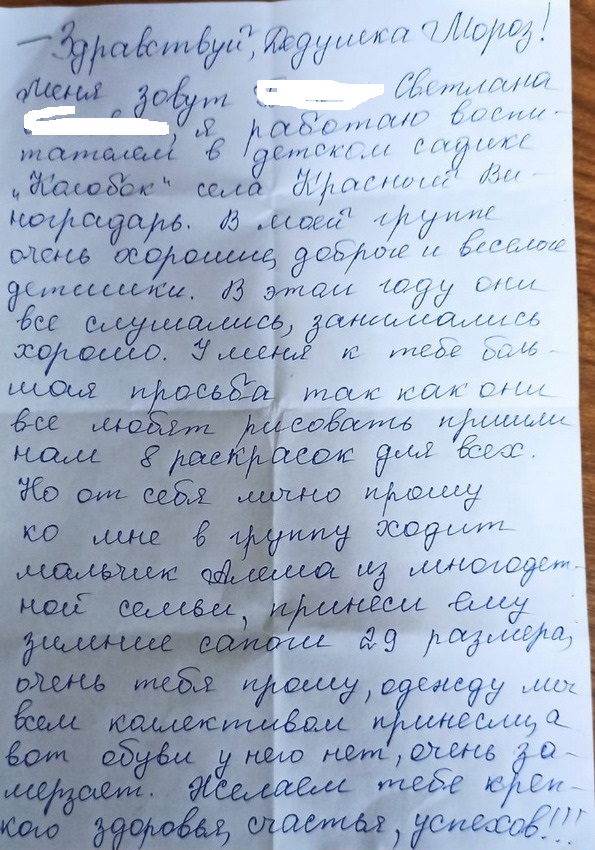 — Здравствуй, Дедушка Мороз!
Меня зовут Светлана
, я работаю воспи-
тателем в детском садике
„Колобок“ села Красный Ви-
ноградарь. В моей группе
очень хорошие, добрые и веселые
детишки. В этом году они
все слушались, занимались
хорошо. У меня к тебе боль-
шая просьба так как они
все любят рисовать пришли
нам 8 раскрасок для всех.
Но от себя лично прошу
ко мне в группу ходит
мальчик из многодет-
ной семьи, принеси ему
зимние сапоги 29 размера,
очень тебя прошу, одежду мы
всем коллективом принесли, а
вот обуви у него нет, очень за-
мерзает. Желаем тебе креп-
кого здоровья, счастья, успехов!!!